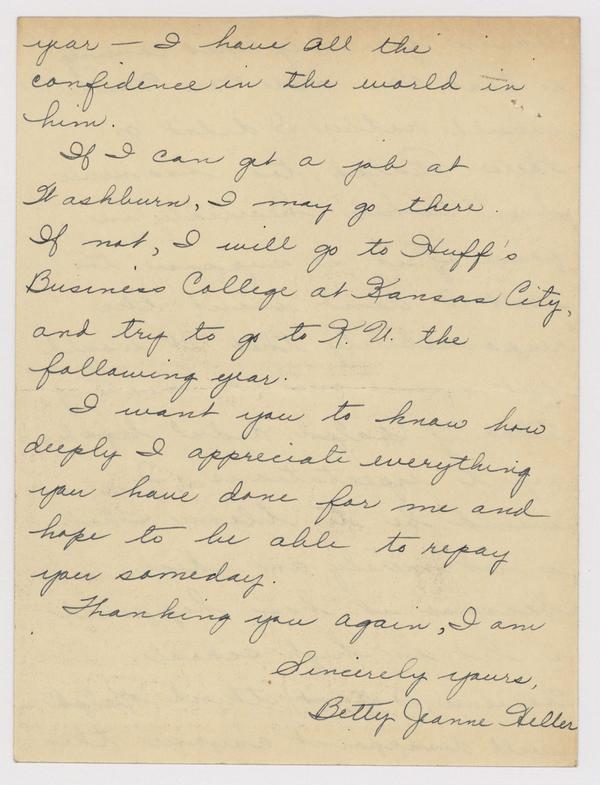 year — I have all the
confidence in the world in
him.
If I can get a job at
Washburn, I may go there.
If not, I will go to Huff's
Business College at Kansas City,
and try to go to K.U. the
following year.
I want you to know how
deeply I appreciate everything
you have done for me and
hope to be able to repay
you someday.
Thanking you again, I am
Sincerely yours,
Betty Jeanne Heller